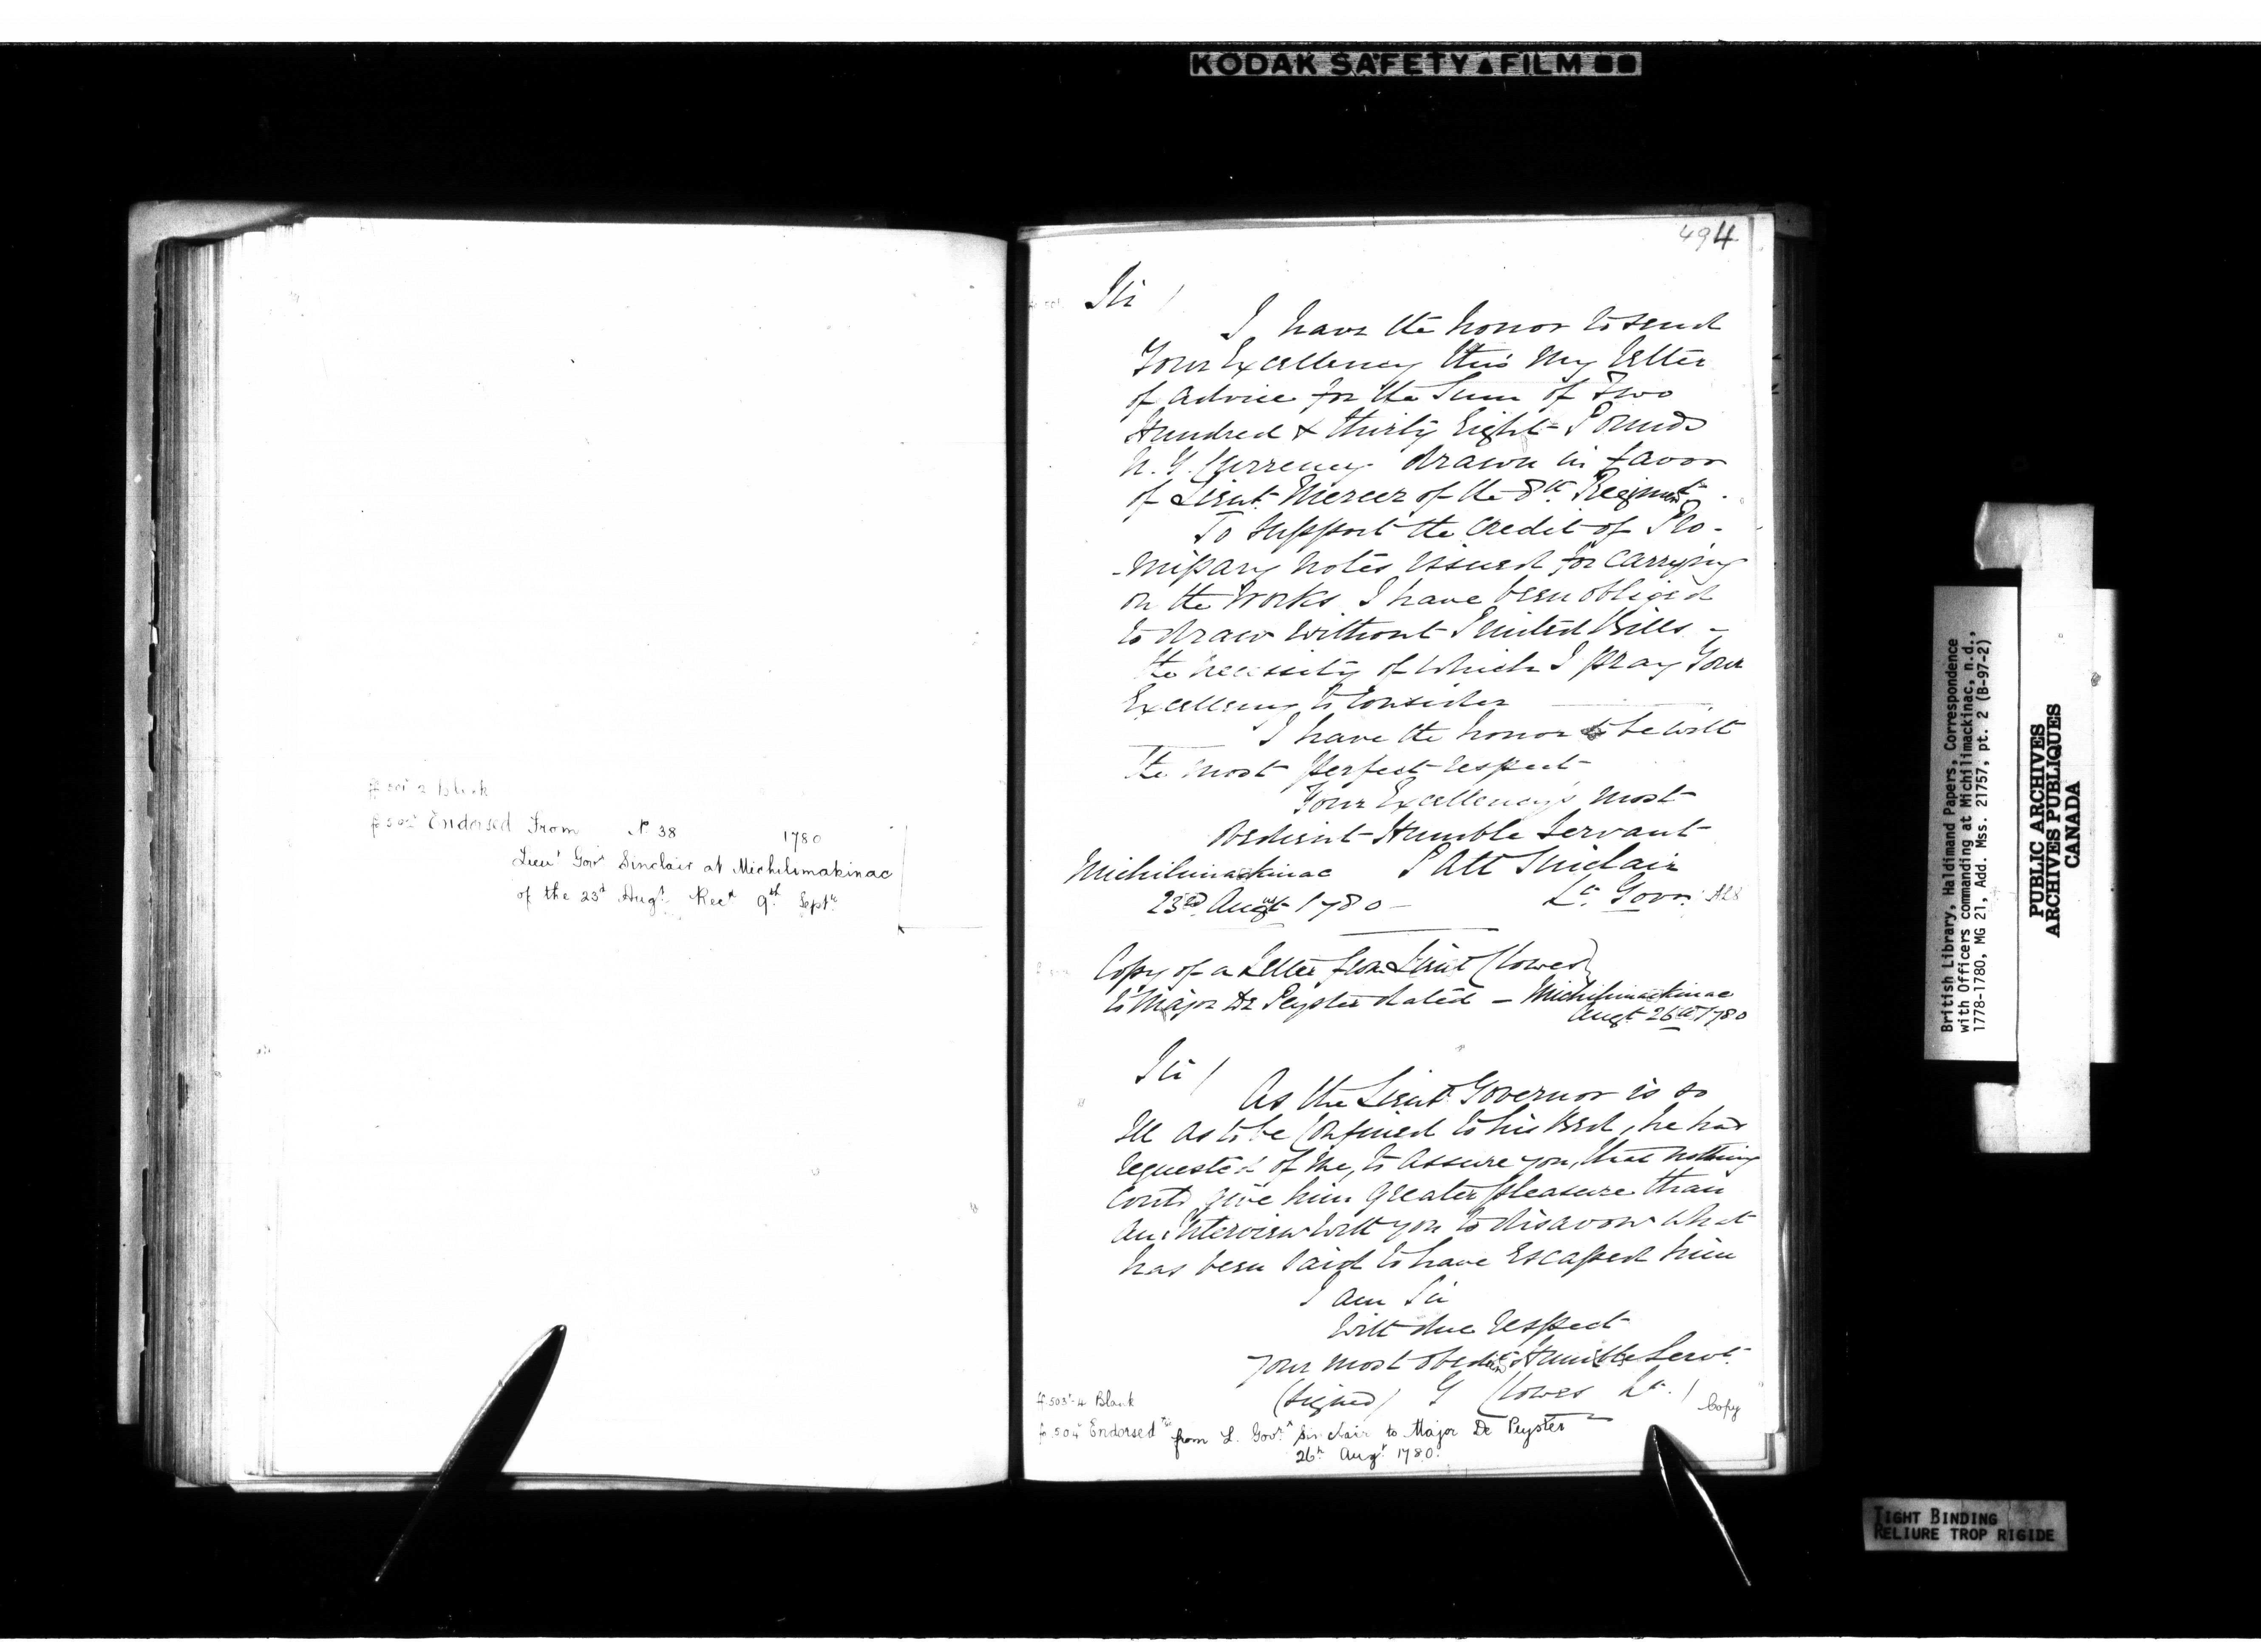 KODAK SAFETY FILM
ff 501v-2 Blank
f 502v Endorsed From No. 38 1780
Lieut Govr Sinclair at Michilimakinac
of the 23d Augt Recd 9th Septr
494
Sir /
I have the honor to send
Your Excellency this My letter
of advice for the Sum of Two
Hundred & thirty Eight Pounds
N. Y. Currency drawn in favor
of Lieut Mercer of the 8th Regiment.
To Support the Credit of Pro-
-missary Notes issued for Carrying
on the Works I have been obliged
to draw without Printed Bills -
the necessity of which I pray Your
Excellency to Consider
I have the honor to be with
the most perfect respect
Your Excellency's most
Obedient Humble Servant
Michilimackinac Patt Sinclair
23rd August 1780 - Lt. Govr. ALS
Copy of a Letter from Lieut Clowes
to Major De Peyster dated - Michilimackinac
Augt 26th 1780
Sir /
As the Lieut Governor is so
Ill as to be Confined to his Bed, he has
requested of me, to assure you, that nothing
could give him greater pleasure than
an interview with you to disavow what
has been said to have Escaped him
I am Sir
with due respect
your most obedient Humble Servt
(signed) G Clowes Lt. /
Copy
ff 503v-4 Blank
f. 504v Endorsed from L. Govr. Sinclair to Major De Peyster
26th Augt 1780.
British Library, Haldimand Papers, Correspondence
with Officers commanding at Michilimackinac, n.d.,
1778-1780, MG 21, Add. Mss. 21757, pt. 2 (B-97-2)
PUBLIC ARCHIVES
ARCHIVES PUBLIQUES
CANADA
TIGHT BINDING
RELIURE TROP RIGIDE